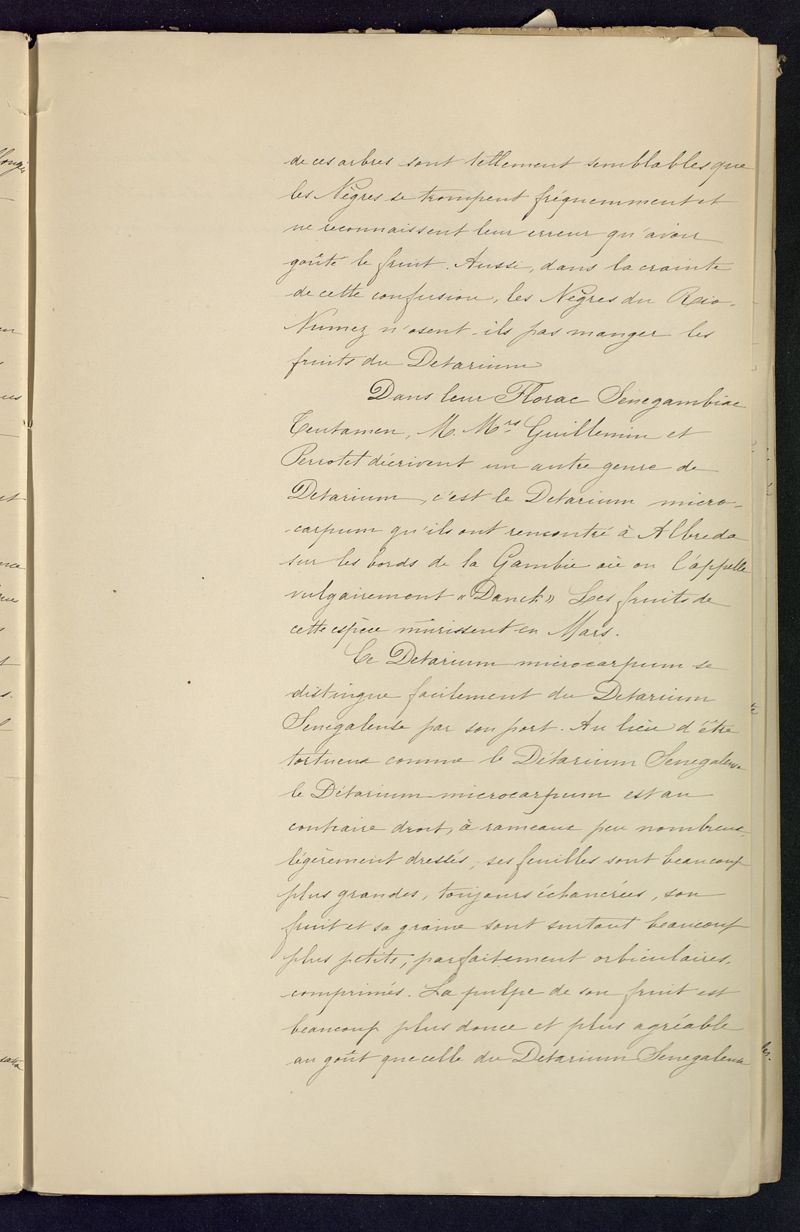 de ces arbres sont tellement semblables que
les Nègres se trompent fréquemment et
ne reconnaissent leur erreur qu'avoir
goûté le fruit. Aussi, dans la crainte
de cette confusion, les Nègres du Rio-
Numez n'osent-ils pas manger les
fruits du Detarium
Dans leur Florae Senegambiae
Tentamen, M. Mrs Guillemin et
Perrotet décrivent un autre genre de
Detarium, c'est le Detarium micro-
-carpum qu'ils ont rencontré à Albreda
sur les bords de la Gambie où on l'appelle
vulgairement «Danck» Les fruits de
cette espèce mûrissent en Mars.
Ce Detarium microcarpum se
distingue facilement du Detarium
Senegalense par son port. Au lieu d'être
tortueux comme le Détarium Senegalense
le Détarium microcarpum est au
contraire droit, à rameaux peu nombreux,
légèrement dressés, ses feuilles sont beaucoup
plus grandes, toujours échancrées, son
fruit et sa graine sont surtout beaucoup
plus petits, parfaitement orbiculaires,
comprimés. La pulpe de son fruit est
beaucoup plus douce et plus agréable
au goût que celle du Detarium Senegalense